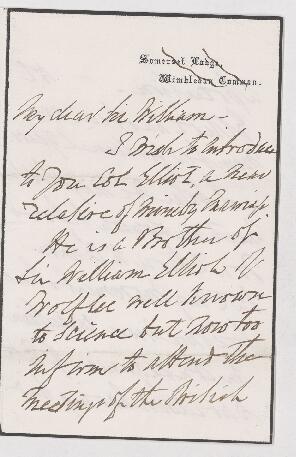 Somerset Lodge,
Wimbledon Common.
My dear Sir William -
I wish to introduce
to you Col. Elliot, a near
relative of mine by marriage.
He is a Brother of
Sir William Elliot of
Wolflee well known
to Science but now too
infirm to attend the
meetings of the British